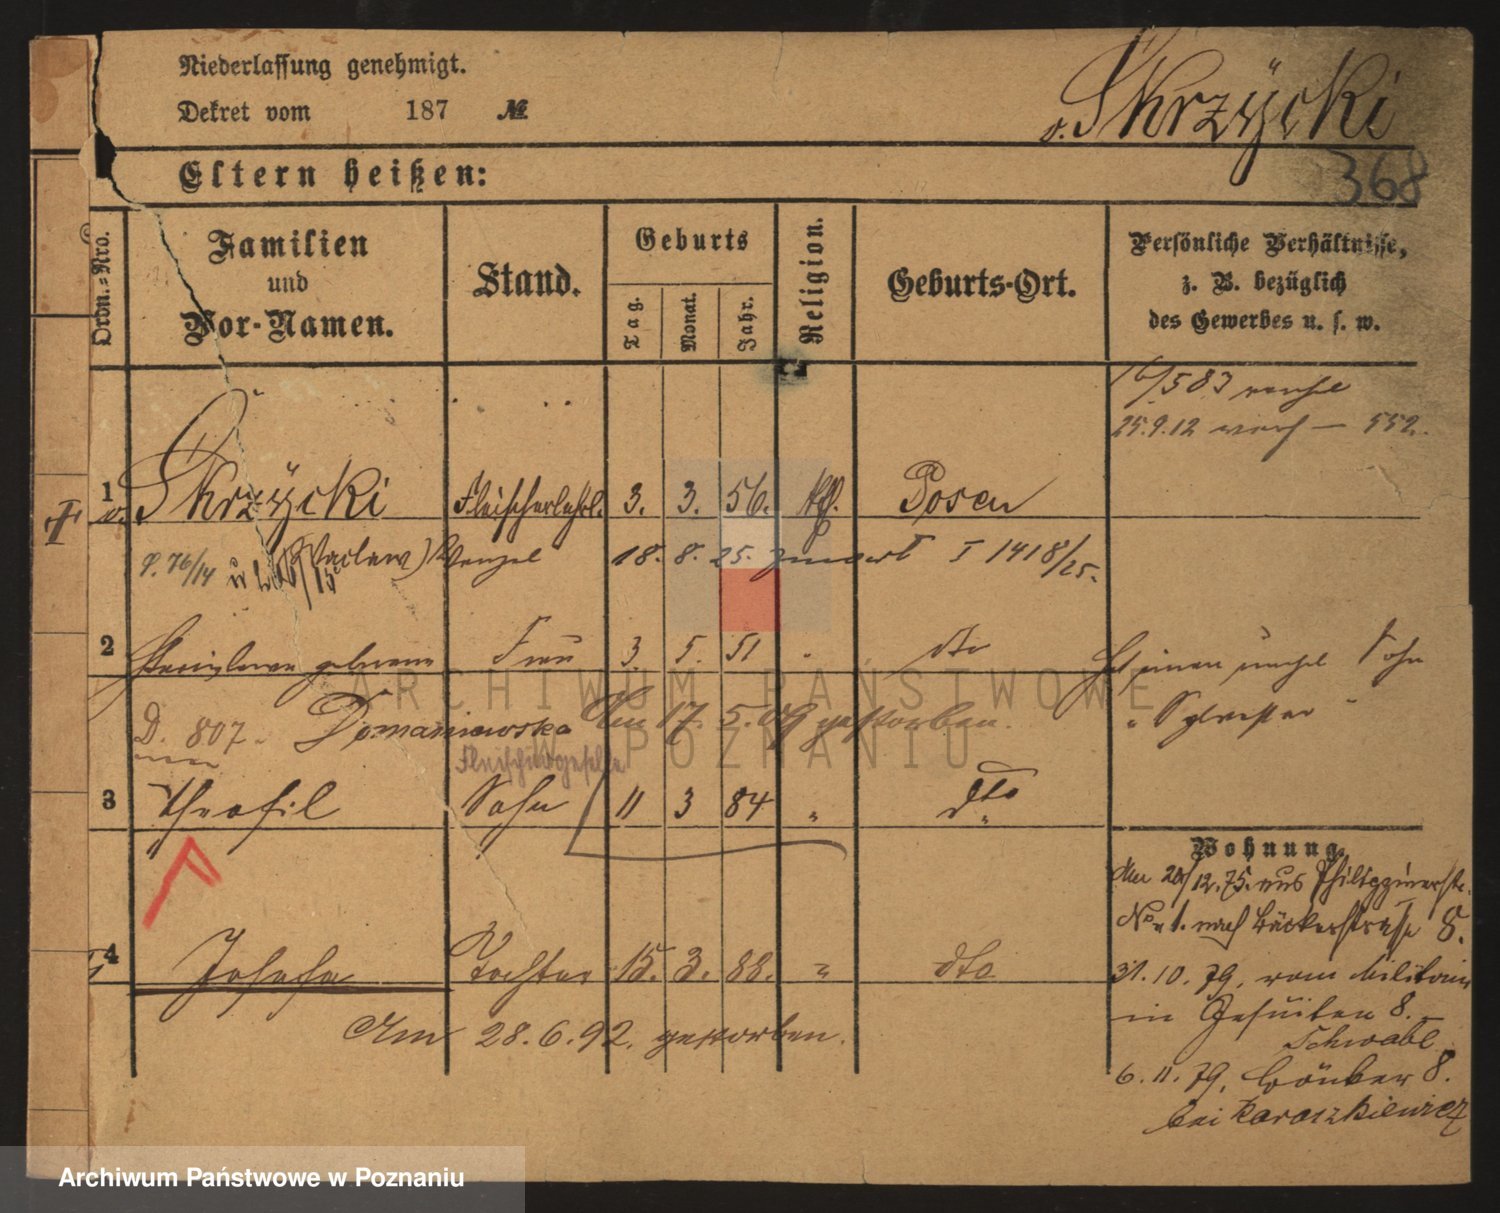 Niederlassung genehmigt.
Dekret vom 187 №
v. Skrzÿcki
368
Eltern heißen:
Ordn.-Nro.
Familien
und
Vor-Namen.
Stand.
Geburts
Tag.
Monat.
Jahr.
Religion.
Geburts-Ort.
Persönliche Verhältnisse,
z. B. bezüglich
des Gewerbes u. s. w.
16/5 83
25.9.12 552.
1 v. Skrzÿcki Fleischerlehrl. 3. 3. 56. kth. Posen
P. 76/14 (Waclaw) Wenzel 18. 8. 25. I 1418/25.
2 geborene Frau 3. 5. 51 dto
Hat einen unehel Sohn
D. 807. Domaniewska Am 17. 5. 09 gestorben.
" Sylvester "
Fleischergeselle
3 Theofil Sohn 11 3 84 " dto
Wohnung.
Am 20/12.75. aus Philippinerstr.
No 1. nach Bäckerstrasse 8.
4 Josefa Tochter 15. 3. 88. " dto
31. 10. 79. vom Militair
in Jesuiten 8.
Am 28. 6. 92. gestorben.
Schwabe
6. 11. 79. 8.
bei Karaszkiewicz
ARCHIWUM PAŃSTWOWE
W POZNANIU
Archiwum Państwowe w Poznaniu